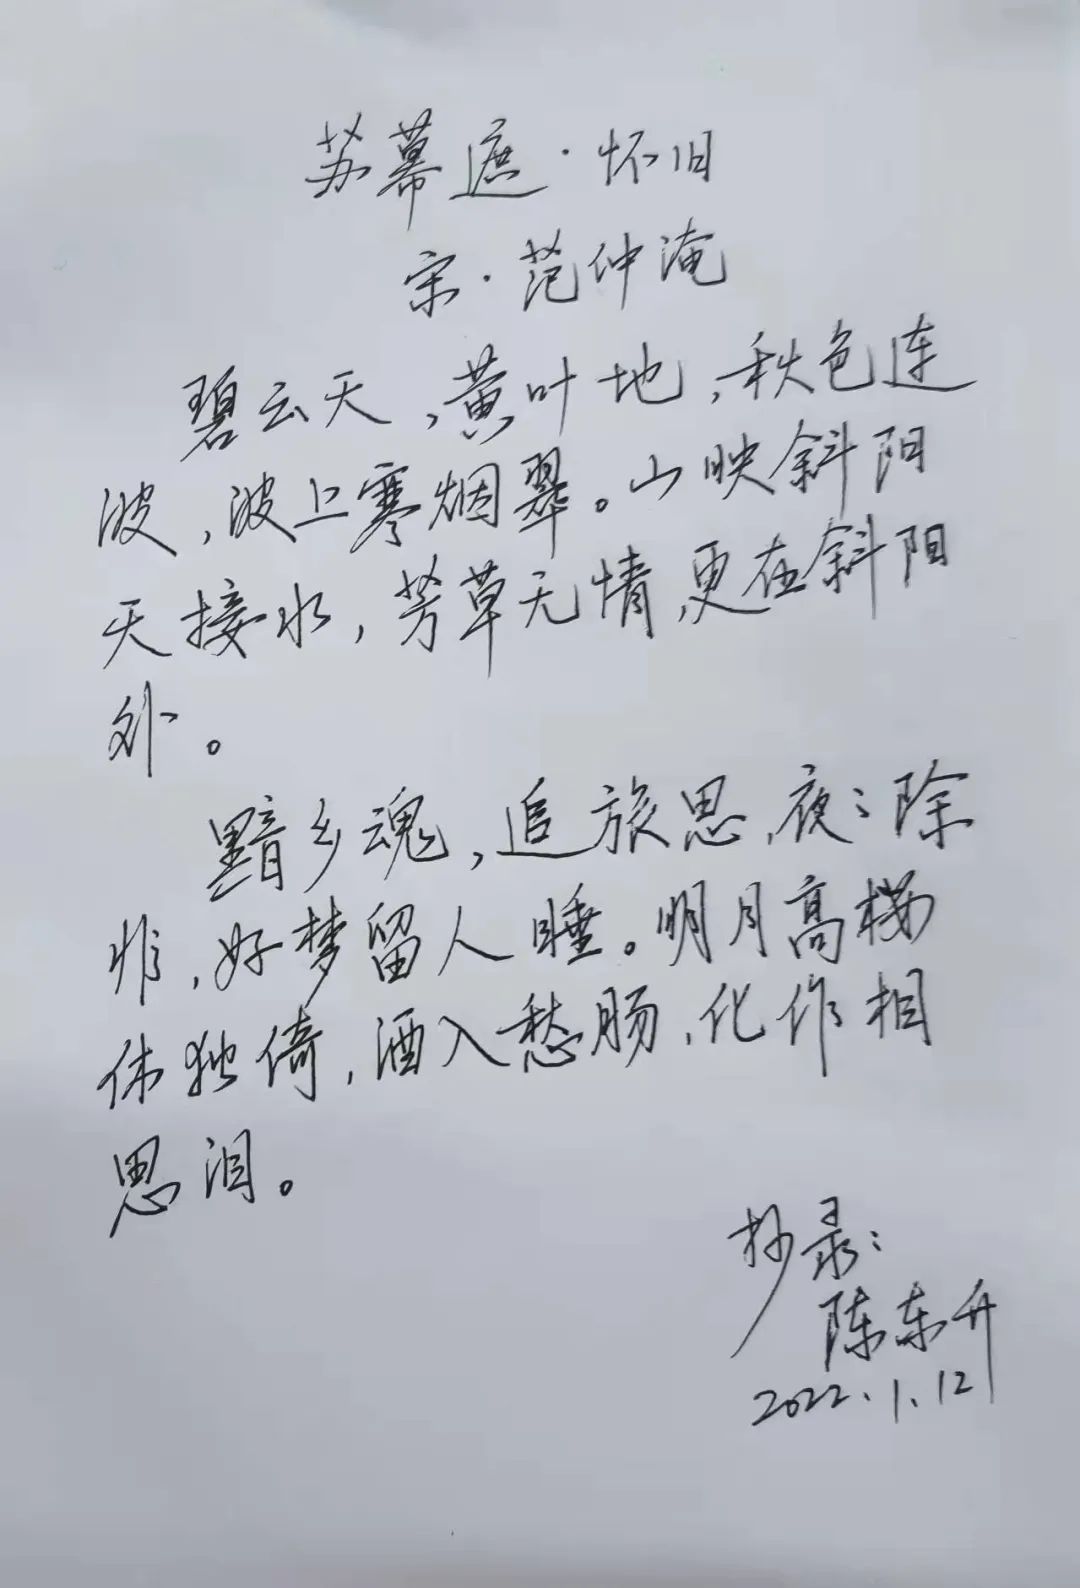 苏幕遮·怀旧
宋·范仲淹
碧云天,黄叶地,秋色连
波,波上寒烟翠。山映斜阳
天接水,芳草无情,更在斜阳
外。
黯乡魂,追旅思,夜々除
非,好梦留人睡。明月高楼
休独倚,酒入愁肠,化作相
思泪。
抄录:
陈东升
2022.1.12